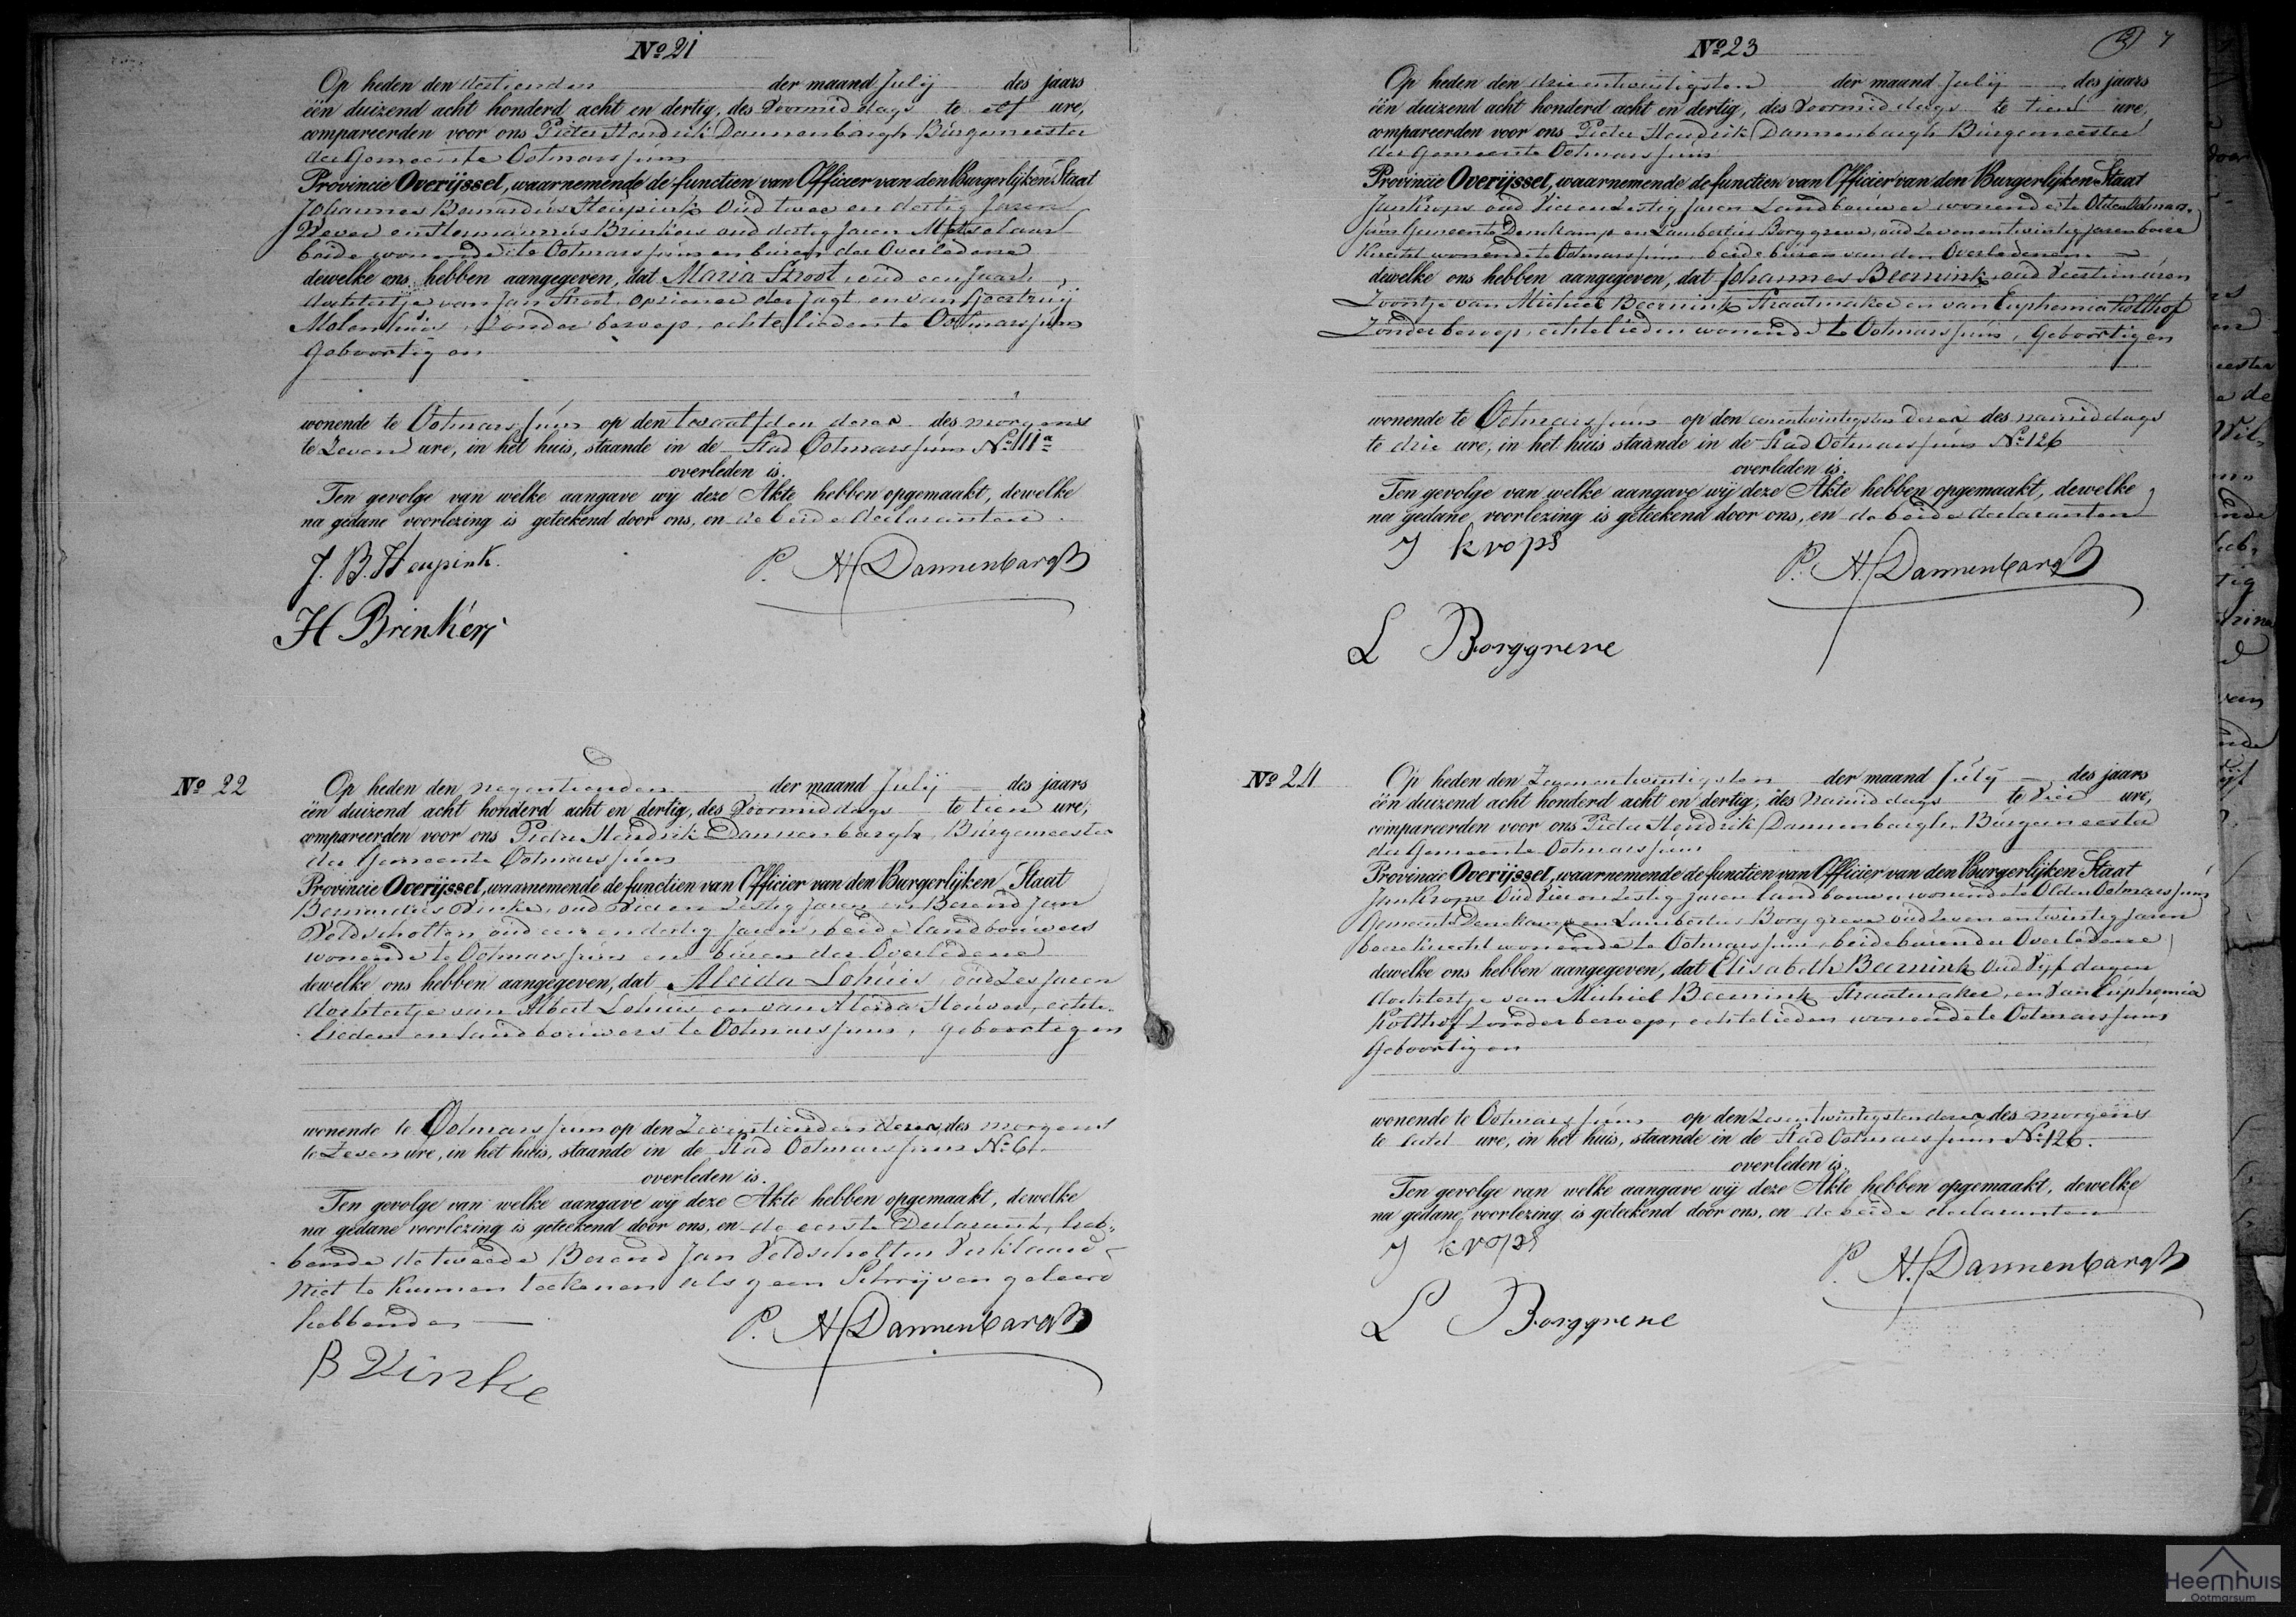 Nº 21
Op heden den dertienden der maand Julij des jaars
één duizend acht honderd acht en dertig, des Voormiddags te elf ure,
compareerden voor ons Pieter Hendrik Dannenbargh Burgemeester
der Gemeente Ootmarssum
Provincie Overijssel, waarnemende de functien van Officier van den Burgerlijken Staat
Johannes Bernardus Heupink oud twee en dertig Jaren
Wever en Hermannus Brinkers oud dertig Jaren Metselaar
beide wonende te Ootmarssum en buren der Overledene
dewelke ons hebben aangegeven, dat Maria Stroot, oud een Jaar,
dochtertje van Jan Stroot, opziener der Jagt en van Geertruij
Molenhuis, zonder beroep, echtelieden te Ootmarssum
geboortig en
wonende te Ootmarssum op den twaalfden dezer des morgens
te Zeven ure, in het huis, staande in de Stad Ootmarssum Nº 111a
overleden is.
Ten gevolge van welke aangave wij deze Akte hebben opgemaakt, dewelke
na gedane voorlezing is geteekend door ons, en de beide declaranten
J. B. Heupink.
P. H. Dannenbargh
H Brinkers
Nº 22
Op heden den negentienden der maand Julij des jaars
één duizend acht honderd acht en dertig, des Voormiddags te tien ure,
compareerden voor ons Pieter Hendrik Dannenbargh, Burgemeester
der Gemeente Ootmarssum
Provincie Overijssel, waarnemende de functien van Officier van den Burgerlijken Staat
Bernardus Vinke, oud Vier en Zestig Jaren en Berend Jan
Veldscholten oud een en dertig Jaren, beide landbouwers
wonende te Ootmarssum en buren der Overledene
dewelke ons hebben aangegeven, dat Aleida Lohuis, oud Zes Jaren
dochtertje van Albert Lohuis en van Aleida Heuver, echte-
lieden en landbouwers te Ootmarssum, geboortig en
wonende te Ootmarssum op den Zeventienden dezer des morgens
te Zeven ure, in het huis, staande in de Stad Ootmarssum Nº 61.
overleden is.
Ten gevolge van welke aangave wij deze Akte hebben opgemaakt, dewelke
na gedane voorlezing is geteekend door ons, en de eerste Declarant, heb-
bende de tweede Berend Jan Veldscholten Verklaard
Niet te kunnen teekenen als geen Schrijven geleerd
hebbende
P. H. Dannenbargh
B Vinke
Nº 23
Op heden den drie entwintigsten der maand Julij des jaars
één duizend acht honderd acht en dertig, des Voormiddags te tien ure,
compareerden voor ons Pieter Hendrik Dannenbargh Burgemeester
der Gemeente Ootmarssum
Provincie Overijssel, waarnemende de functien van Officier van den Burgerlijken Staat
Jan Krops oud Vier en Zestig Jaren Landbouwer wonende te Olden Ootmar-
sum Gemeente Denekamp en Lambertus Borggreve, oud Zeven entwintig Jaren boere
Knecht wonende te Ootmarssum beide buren van den Overledenen
dewelke ons hebben aangegeven, dat Johannes Beernink, oud Veertien uren
Zoontje van Michiel Beernink Straatmaker en van Euphemia Kolthof
Zonder beroep, echtelieden wonende te Ootmarssum, Geboortig en
wonende te Ootmarssum op den eenentwintigsten dezer des namiddags
te drie ure, in het huis staande in de Stad Ootmarssum Nº 126
overleden is.
Ten gevolge van welke aangave wij deze Akte hebben opgemaakt, dewelke
na gedane voorlezing is geteekend door ons, en de beide declaranten
J krops
P. H. Dannenbargh
L Borggreve
Nº 24
Op heden den Zevenentwintigsten der maand Julij des jaars
één duizend acht honderd acht en dertig, des Namiddags te Vier ure,
compareerden voor ons Pieter Hendrik Dannenbargh, Burgemeester
der Gemeente Ootmarssum
Provincie Overijssel, waarnemende de functien van Officier van den Burgerlijken Staat
Jan Krops Oud Vier en Zestig Jaren landbouwer wonende te Olden Ootmarssum
Gemeente Denekamp en Lambertus Borggreve oud Zeven en twintig Jaren
boereknecht wonende te Ootmarssum, beide buren der Overledene
dewelke ons hebben aangegeven, dat Elisabeth Beernink, oud Vijf dagen
dochtertje van Michiel Beernink Straatmaker, en Van Euphemia
Kolthof Zonder beroep, echtelieden wonende te Ootmarssum
Geboortig en
wonende te Ootmarssum op den Zesentwintigsten dezer des morgens
te acht ure, in het huis, staande in de Stad Ootmarssum Nº 126.
overleden is.
Ten gevolge van welke aangave wij deze Akte hebben opgemaakt, dewelke
na gedane voorlezing is geteekend door ons, en de beide declaranten
J krops
P. H. Dannenbargh
L Borggreve
Heemhuis
Ootmarsum